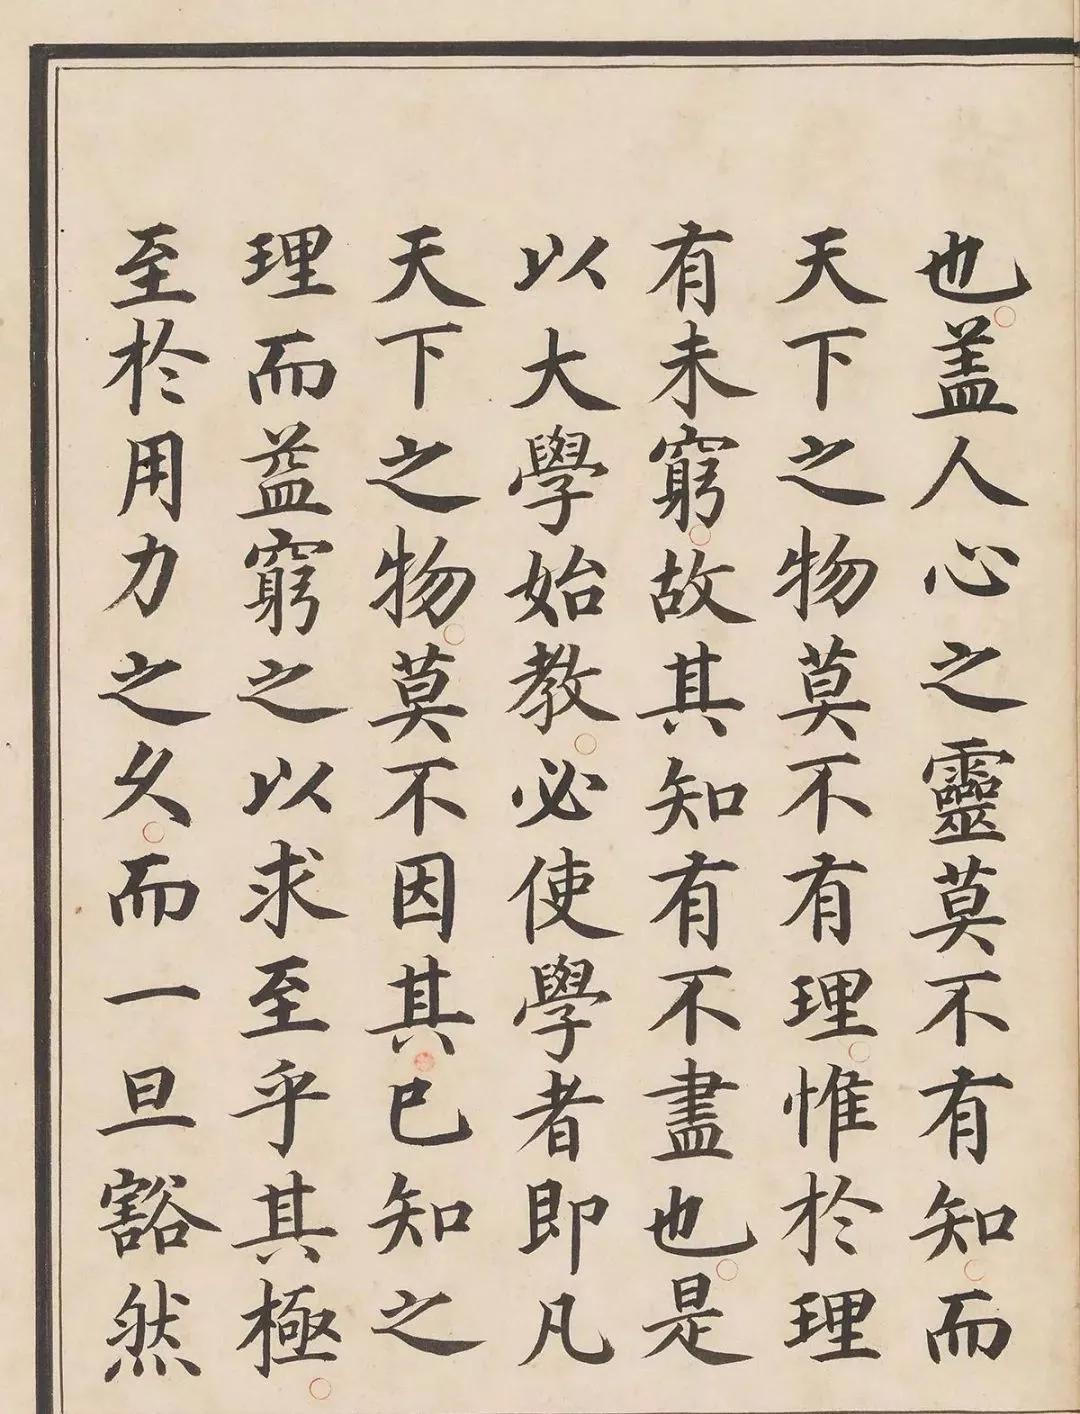 也盖人心之靈莫不有知而
天下之物莫不有理惟於理
有未窮故其知有不盡也是
以大學始教必使學者即凡
天下之物莫不因其已知之
理而益窮之以求至乎其極
至於用力之久而一旦豁然